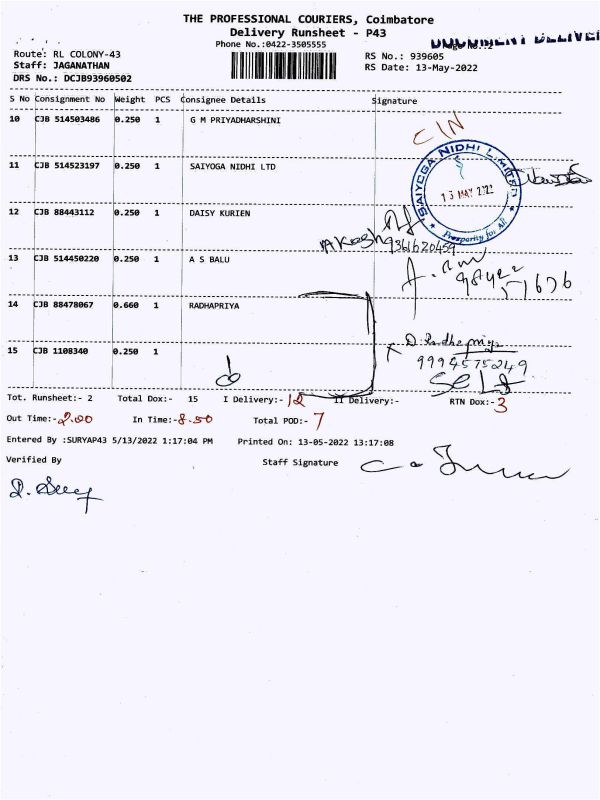 THE PROFESSIONAL COURIERS, Coimbatore
Delivery Runsheet - P43
Phone No.:0422-3505555
Route: RL COLONY-43
Staff: JAGANATHAN
DRS No.: DCJB93960502
RS No.: 939605
RS Date: 13-May-2022
S No Consignment No Weight PCS Consignee Details Signature
10 CJB 514503486 0.250 1 G M PRIYADHARSHINI
CIN
11 CJB 514523197 0.250 1 SAIYOGA NIDHI LTD
SAIYOGA NIDHI LIMITED
13 MAY 2022
Prosperity for All
12 CJB 88443112 0.250 1 DAISY KURIEN
Akash
9361620459
13 CJB 514450220 0.250 1 A S BALU
14 CJB 88478067 0.660 1 RADHAPRIYA
D. Radhapriya
15 CJB 1108340 0.250 1
9994575249
Self
Tot. Runsheet:- 2 Total Dox:- 15 I Delivery:- 12 II Delivery:- RTN Dox:- 3
Out Time:- 2.00 In Time:- 8.50 Total POD:- 7
Entered By :SURYAP43 5/13/2022 1:17:04 PM Printed On: 13-05-2022 13:17:08
Verified By Staff Signature